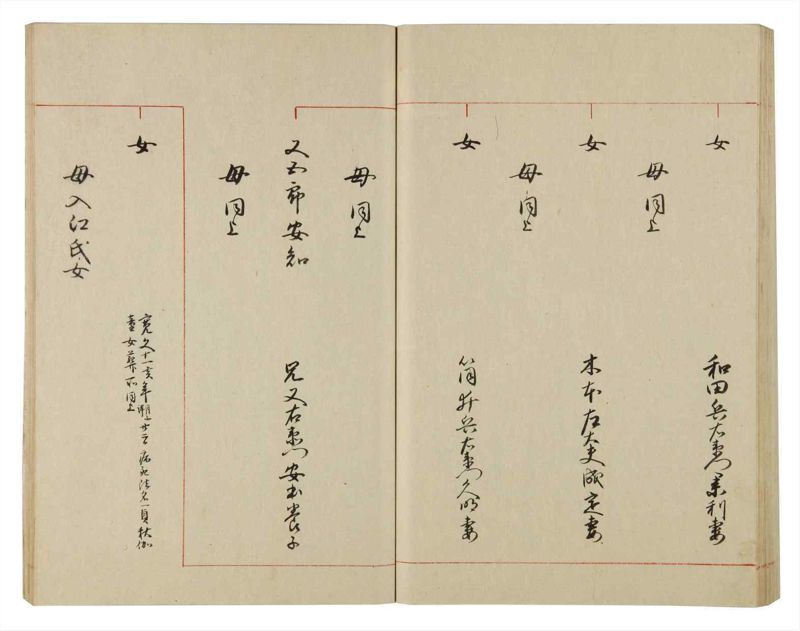 女
和田兵右衛門業利妻
母同上
女
木本左大夫成定妻
母同上
女
筒井兵右衛門久明妻
母同上
又五郎安知
兄又右衛門安 養子
母同上
女
寛文十一亥年 廿三 病死法名一貞
童女葬所同上
母入江氏女